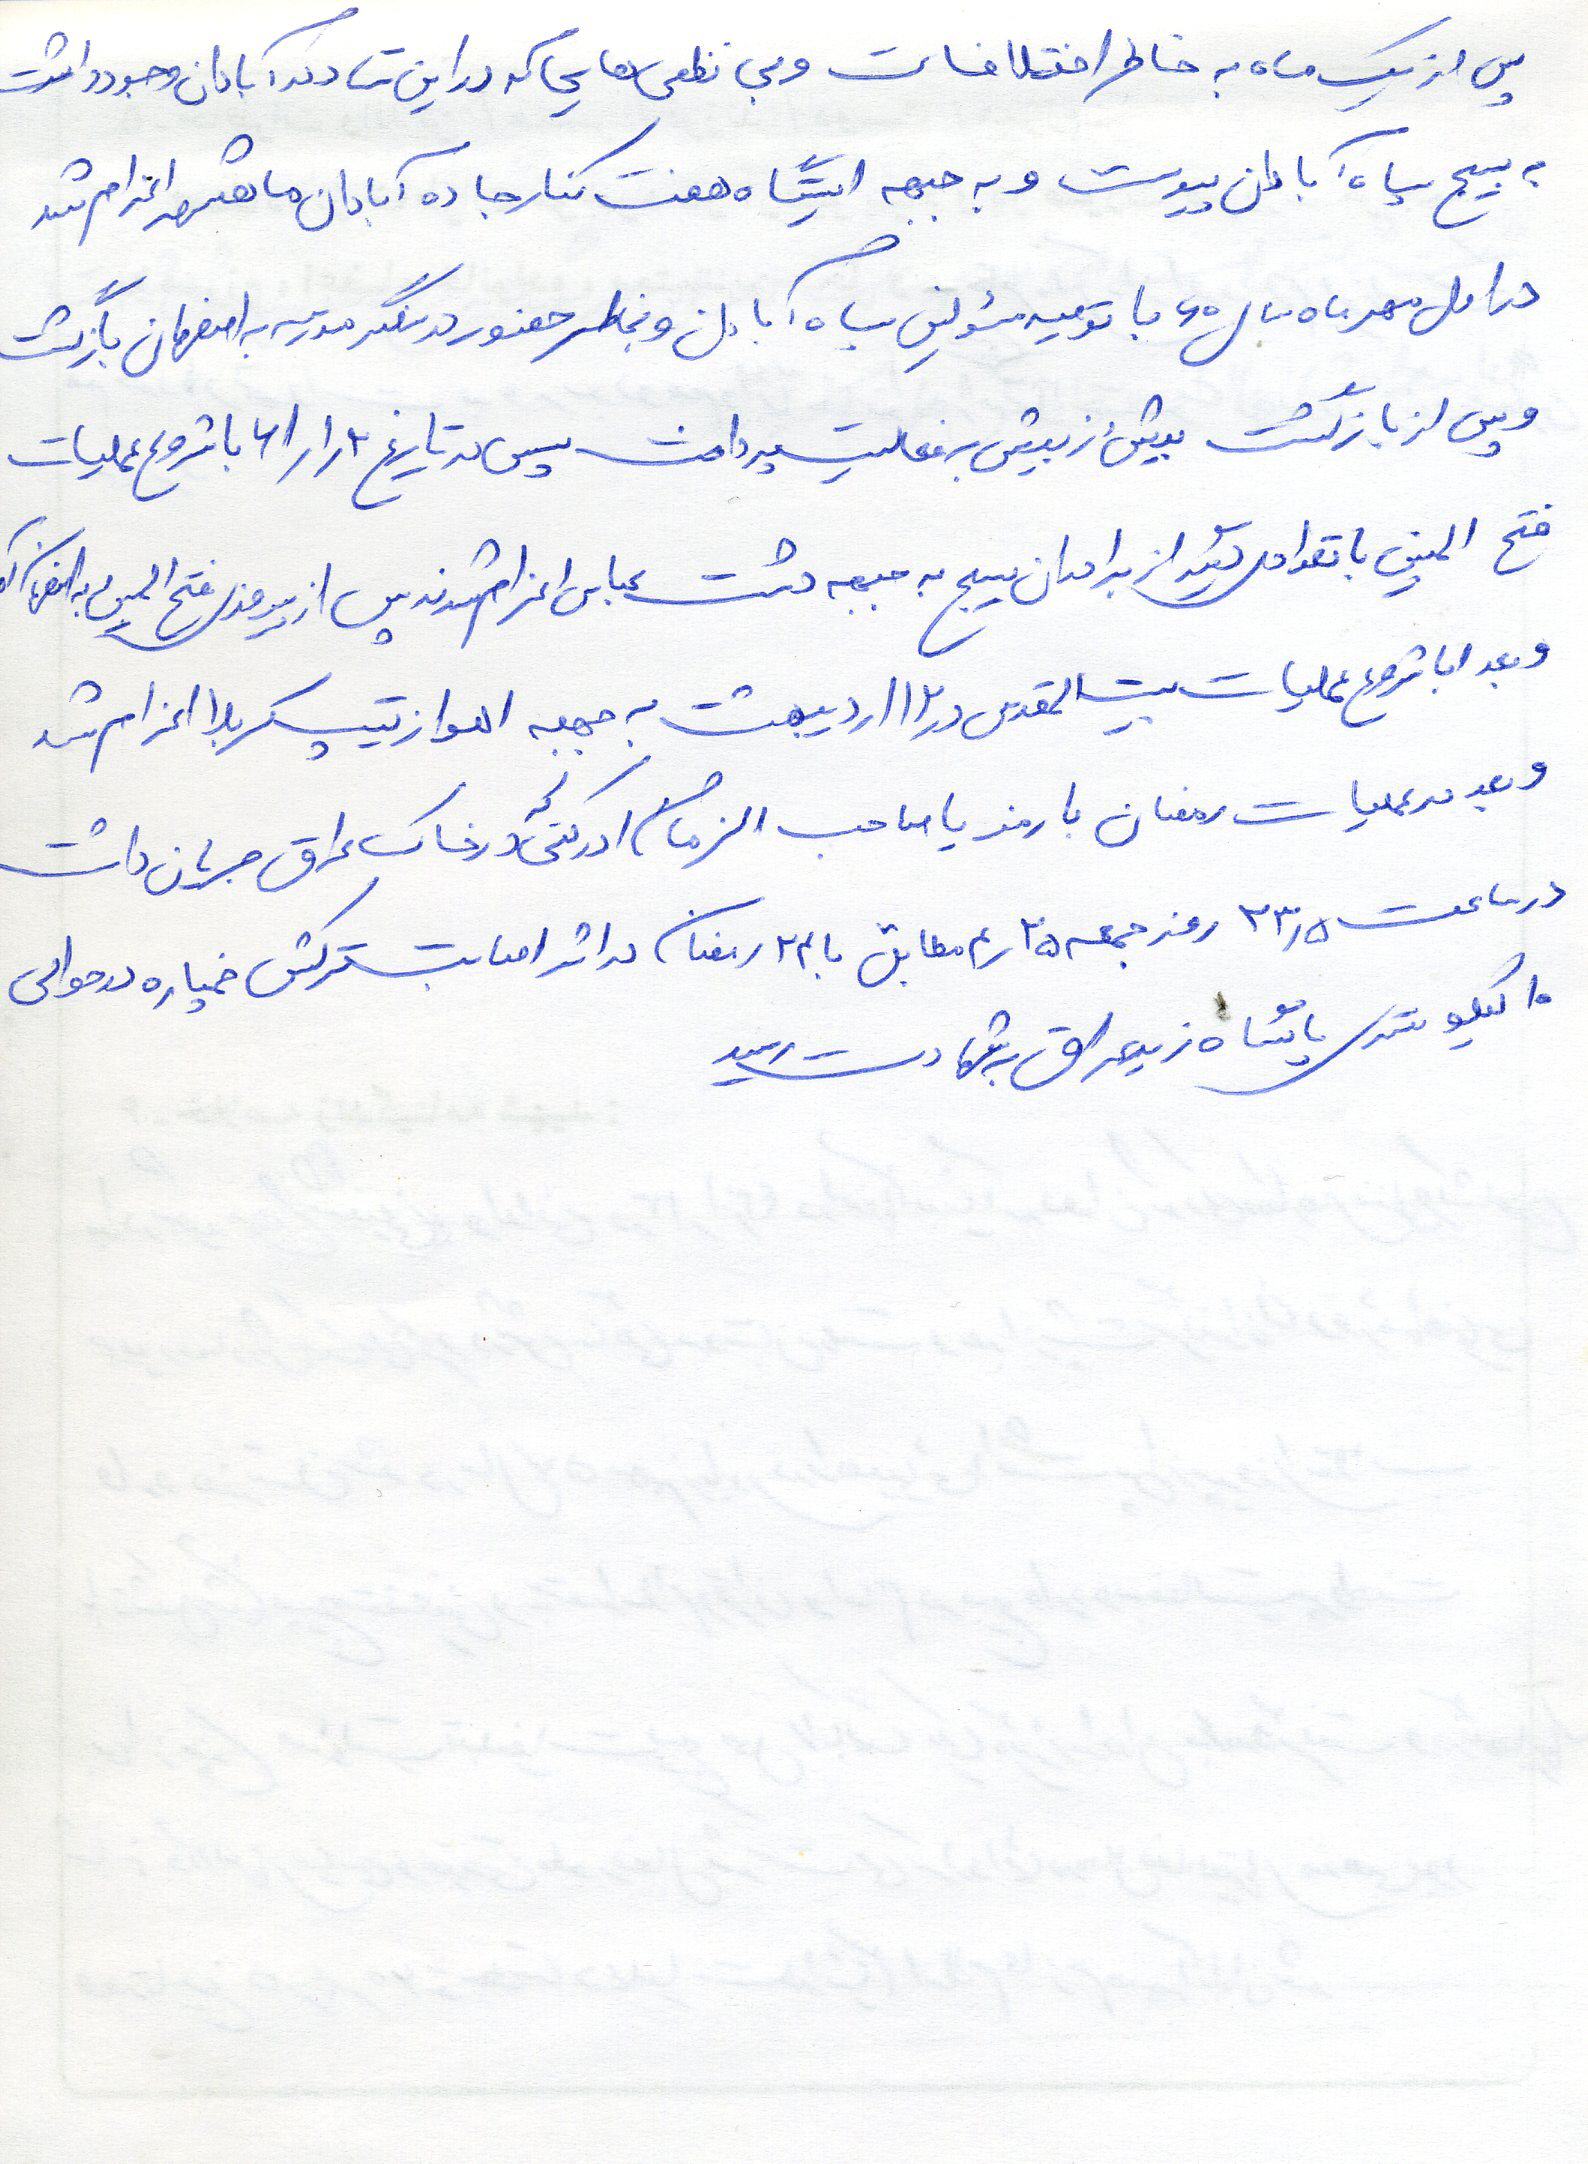 پس از یک ماه به خاطر اختلافات و بی نظمی هایی که در این ستاد در آبادان وجود داشت
به بسیج سپاه آبادان پیوست و به جبهه ایستگاه هفت کنار جاده آبادان ماهشهر اعزام شد
در اول مهر ماه سال ۶۰ با توصیه مسئولین سپاه آبادان و بخاطر حضور در سنگر مدرسه به اصفهان بازگشت
و پس از بازگشت بیش از بیش به فعالیت پرداخت سپس در تاریخ ۲ / ۱ / ۶۱ با شروع عملیات
فتح المبین با تعداد دیگر از برادران بسیج به جبهه دشت عباس اعزام شدند پس از پیروزی فتح المبین به اصفهان
و بعد با شروع عملیات بیت المقدس در ۱۲ اردیبهشت به جبهه اهواز تیپ کربلا اعزام شد
و بعد در عملیات رمضان با رمز یا صاحب الزمان ادرکنی که در خاک عراق جریان داشت
در ساعت ۲۳٫۵ روز جمعه ۲۵ / ۴ مطابق با ۲۴ رمضان در اثر اصابت ترکش خمپاره در حوالی
۱۰ کیلومتری پاسگاه زید عراق به شهادت رسید